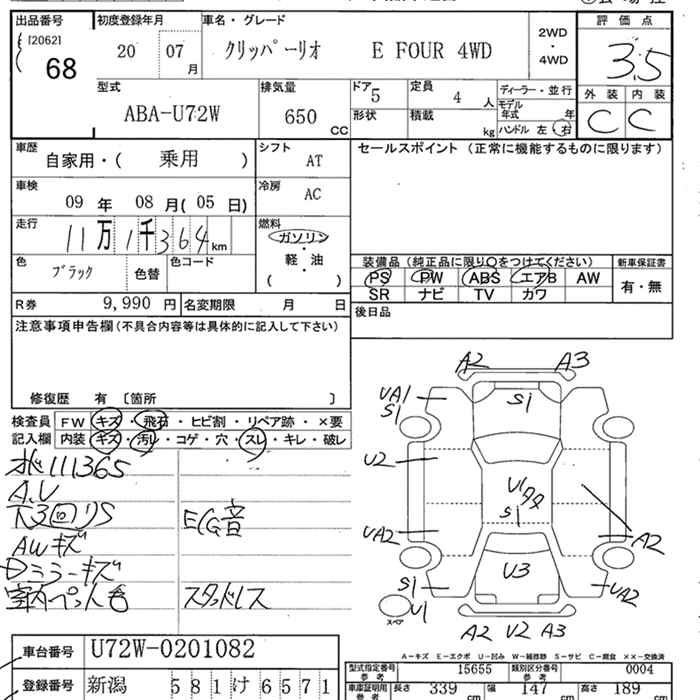 出品番号 初度登録年月 車名・グレード 評価点
[2062] 68 20 07 月 クリッパーリオ E FOUR 4WD 2WD・4WD 3.5
型式 排気量 ドア 定員 ディーラー・並行 外装 内装
ABA-U72W 650 CC 5 4 人 モデル年式 年 C C
形状 積載 kg ハンドル 左・右
車歴 シフト セールスポイント (正常に機能するものに限ります)
自家用・( 乗用 ) AT
車検 冷房
09 年 08 月( 05 日) AC
走行 燃料
11万1千364 km ガソリン・軽・油 ( )
装備品 (純正品に限り○をつけてください) 新車保証書
色 色替 色コード PS PW ABS エアB AW 有・無
ブラック SR ナビ TV カワ
R券 9,990 円 名変期限 月 日 後日品
注意事項申告欄(不具合内容等は具体的に記入して下さい)
修復歴 有 〔箇所 〕
検査員 FW キズ・飛石・ヒビ割・リペア跡・×要
記入欄 内装 キズ・汚レ・コゲ・穴・スレ・キレ・破レ
111365
A.V
下3回りS ECG音
AWキズ
Dミラーキズ
スタッドレス
A2 A3
UA1 S1 S1
U2 U1 タタ S1
UA2 A2
S1 U3 UA2
U1 スペア
A2 U2 A3
A-キズ E-エクボ U-凹み W-補修跡 S-サビ C-腐食 ××-交換済
車台番号 U72W-0201082
型式指定番号 参考 15655 類別区分番号 参考 0004
登録番号 新潟 581 け 6571
車庫証明用 参考 長さ 339 幅 147 高さ 189 cm